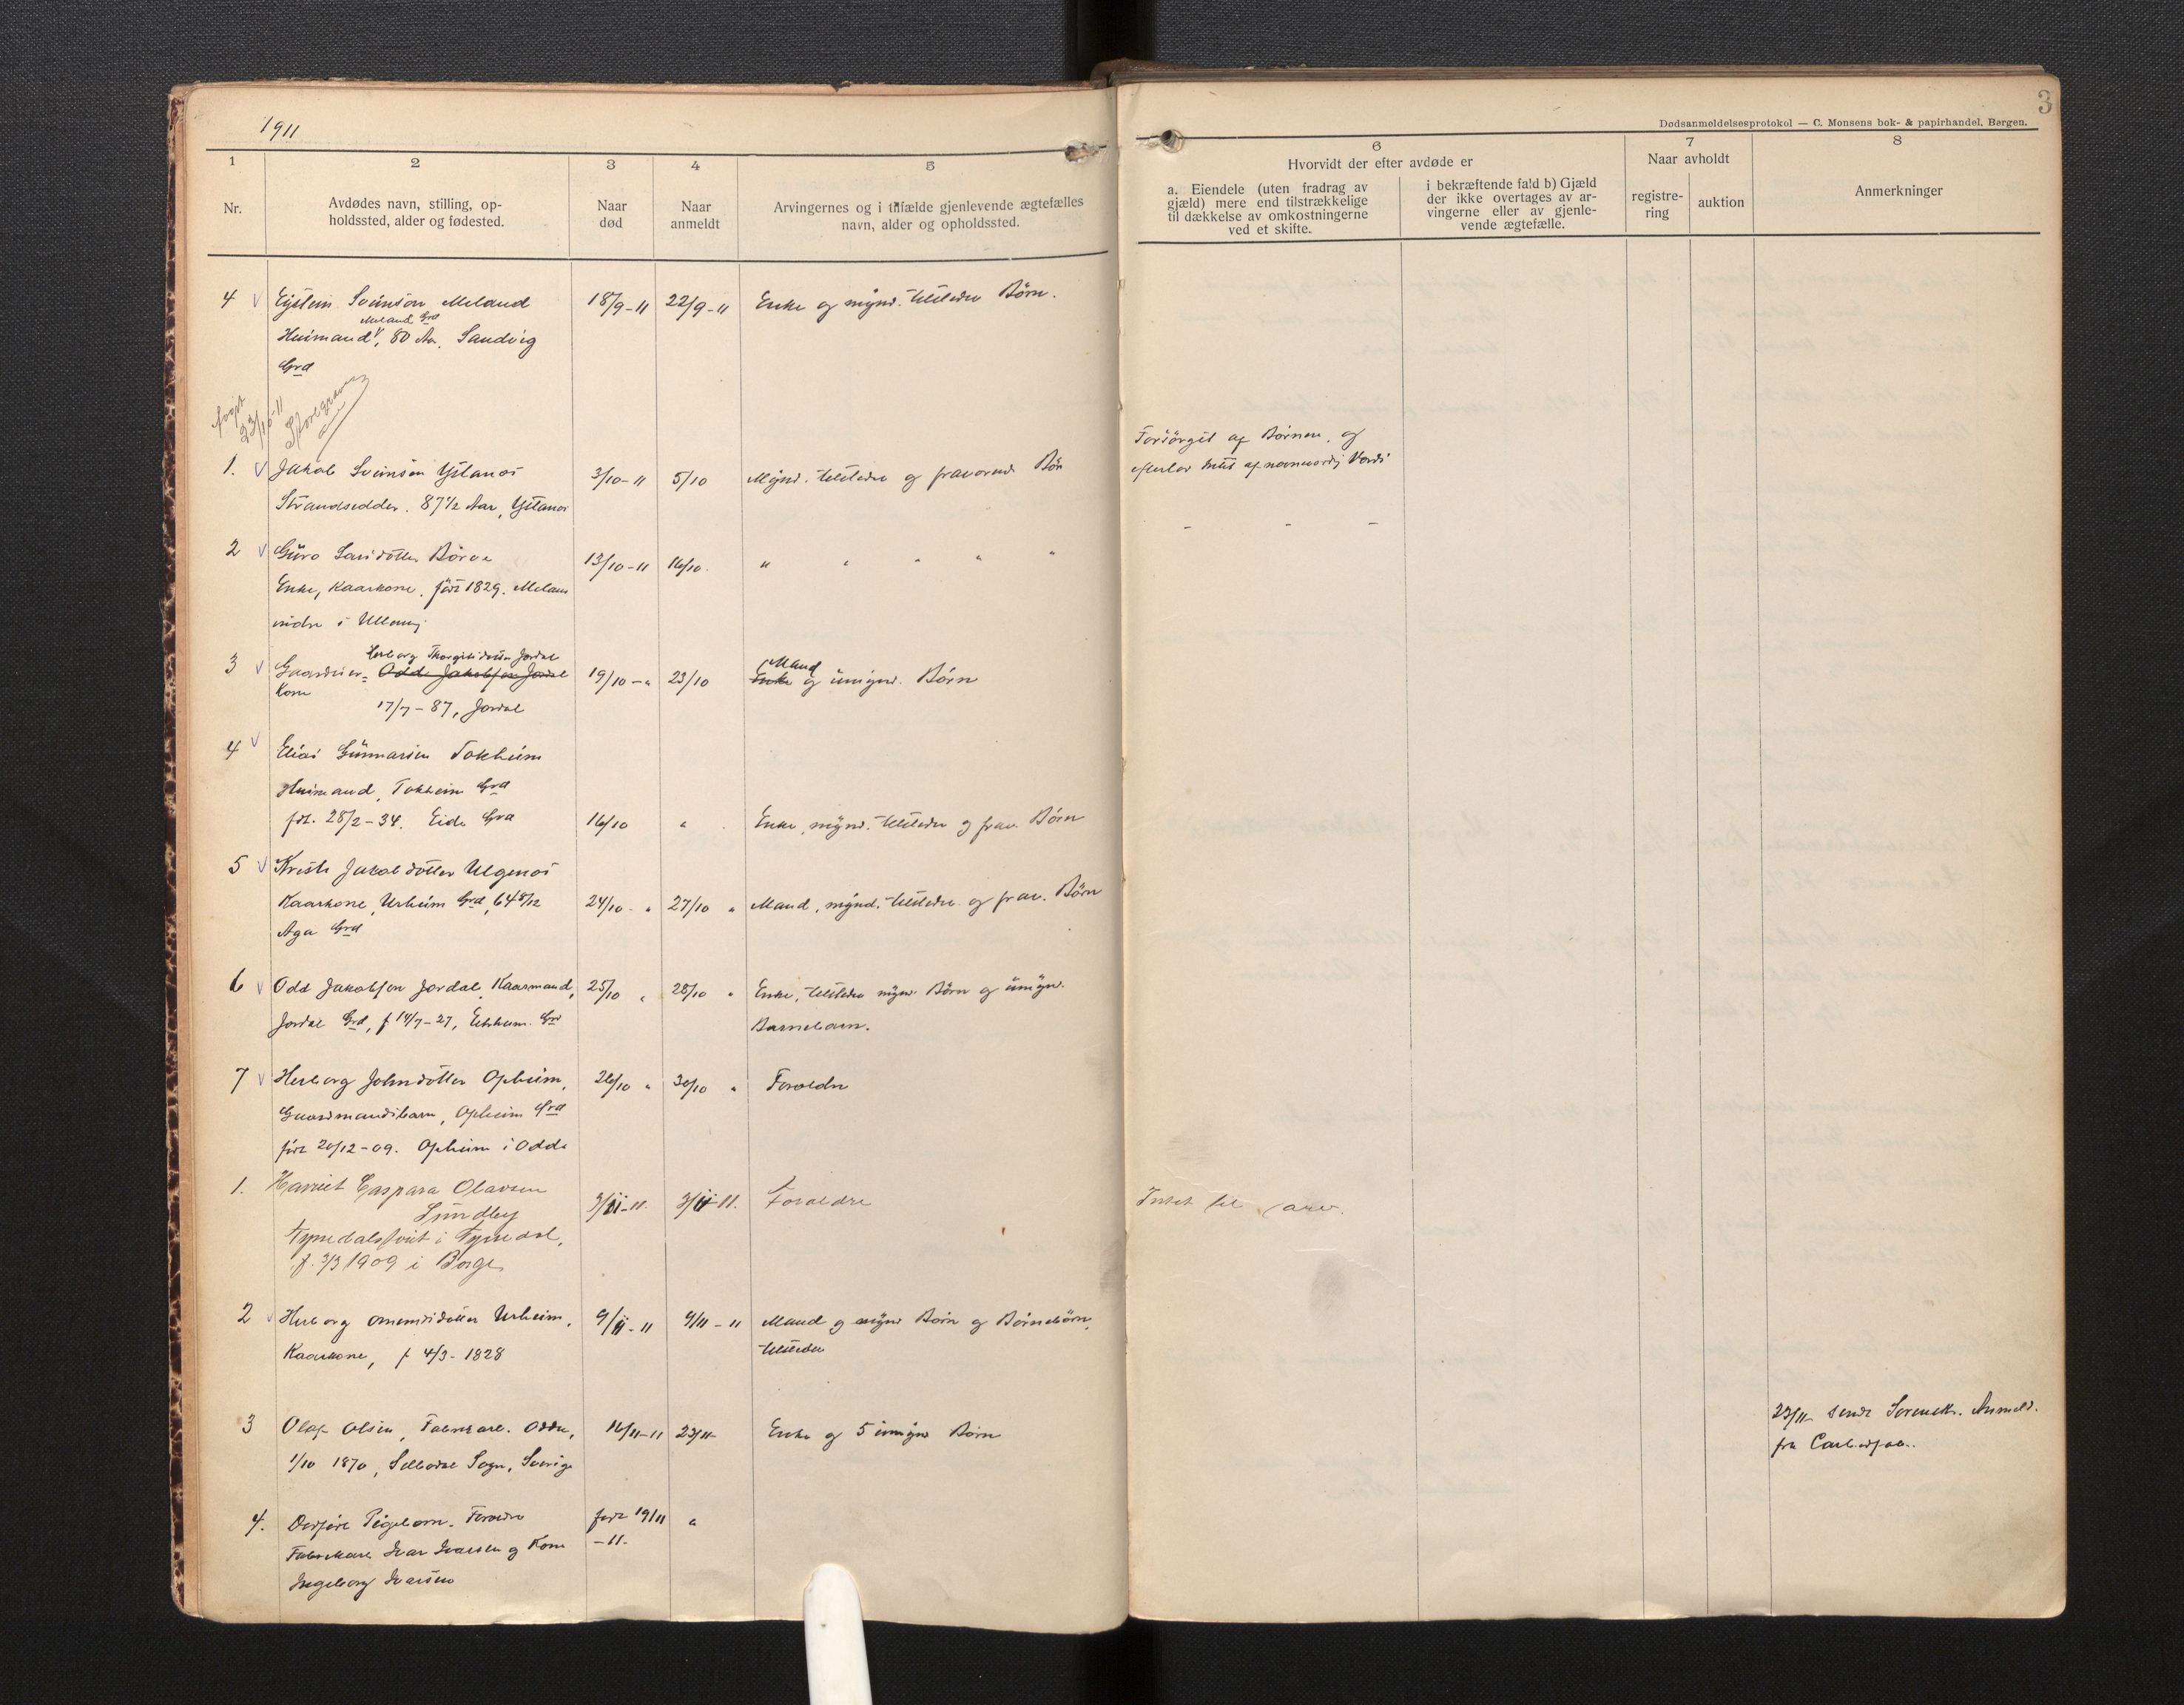 1911
3
Dødsanmeldelsesprotokol — C. Monsens bok- & papirhandel, Bergen.
1
2
3
4
5
6
7
8
Nr.
Avdødes navn, stilling, op-
holdssted, alder og fødested.
Naar
død
Naar
anmeldt
Arvingernes og i tilfælde gjenlevende ægtefælles
navn, alder og opholdssted.
Hvorvidt der efter avdøde er
a. Eiendele (uten fradrag av
gjæld) mere end tilstrækkelige
til dækkelse av omkostningerne
ved et skifte.
i bekræftende fald b) Gjæld
der ikke overtages av ar-
vingerne eller av gjenle-
vende ægtefælle.
Naar avholdt
registre-
ring
auktion
Anmerkninger
4 Eystein Sveinson Meland 18/9-11 22/9-11 Enke og mynd. tilstede Børn.
Meland Grd
Huimand, 80 Aar, Sandvig
Grd
23/10-11
Forsørget af Børnene, og
efterlod intet af
1. Jakob Sveinsen Ystanes 3/10-11 5/10 Mynd. tilstede og fraværende Børn
Strandsidder. 87 1/2 Aar, Ystanes
2 Guro Larsdotter Børve 13/10-11 16/10. " " " " "
Enke, Kaarkone, født 1829.
indre i
3 Gaardbruger= Herborg Thorgilsdatter Jordal
Kone Odd Jakobsen Jordal 19/10-" 23/10 Enke Mand og umynd. Børn
17/7-87, Jordal
4 Elias Gunnarsen Tokheim
Huimand, Tokheim Grd
fdt. 28/2-34. Eide Grd 16/10 " Enke, mynd. tilstede og frav. Børn
5 Kristi Jakobsdotter Ulgenes
Kaarkone, Urheim Grd, 64 24/10 " 27/10 " Mand, mynd. tilstede og frav. Børn
Aga Grd
6 Odd Jakobsen Jordal, Kaarmand, 25/10 " 28/10 " Enke, tilstede mynd. Børn og umynd.
Jordal Grd, f 14/7-27, Grd Barnebarn.
7 Herborg Johnsdotter Opheim, 26/10 " 30/10 " Forældre
Gaardmandsbarn, Opheim Grd
født 20/12-09. Opheim i Odda
1. Harriet Caspara Olavsen
Sundby 3/11-11. 3/11-11. Forældre Intet til arv.
i Tyssedal,
f. 3/3 1909 i Borge
2 Herborg Omundsdotter Urheim, 9/11-11 9/11-11 Mand og mynd Børn og Børnebørn,
Kaarkone, f 4/3-1828 tilstede
3 Olaf Olsen, Fabrikarb. Odda, 16/11-11 23/11 Enke og 5 umynd Børn
1/10 1870, Sogn, Sverige
23/11 sendt Sorensk. Anmeld.
fra
4. Dødfødt Pigebarn. Forældre født 19/11 "
Fabrikarb. Ivar Ivarsen og Kone -11.
Ingeborg Ivarsen